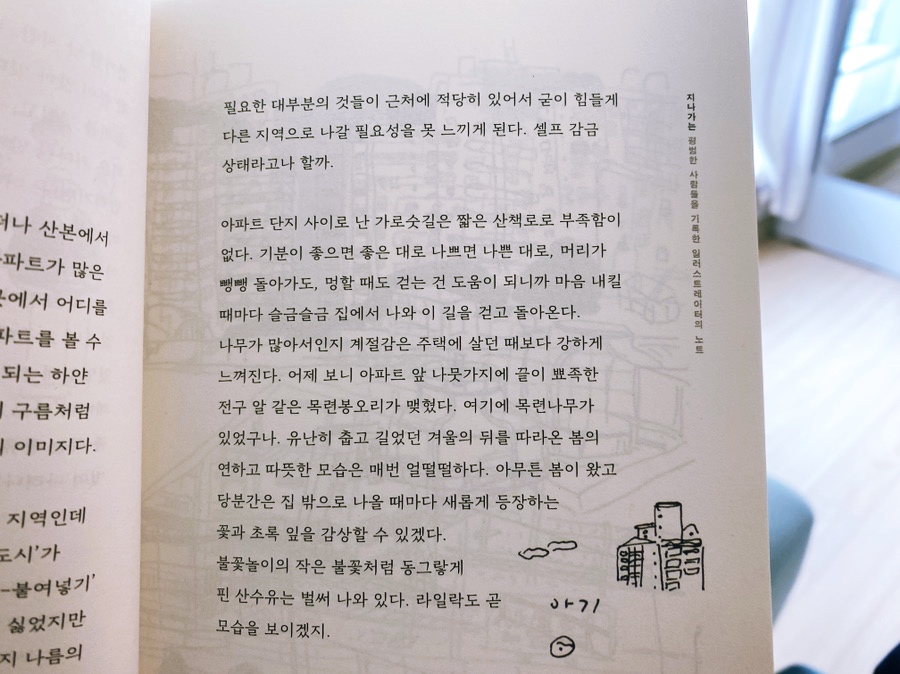 산본에서
많은
에서 어디를
볼 수
되는 하얀
구름처럼
이미지다.
지역인데
싫었지만
나름의
필요한 대부분의 것들이 근처에 적당히 있어서 굳이 힘들게
다른 지역으로 나갈 필요성을 못 느끼게 된다. 셀프 감금
상태라고나 할까.
아파트 단지 사이로 난 가로숫길은 짧은 산책로로 부족함이
없다. 기분이 좋으면 좋은 대로 나쁘면 나쁜 대로, 머리가
뺑뺑 돌아가도, 멍할 때도 걷는 건 도움이 되니까 마음 내킬
때마다 슬금슬금 집에서 나와 이 길을 걷고 돌아온다.
나무가 많아서인지 계절감은 주택에 살던 때보다 강하게
느껴진다. 어제 보니 아파트 앞 나뭇가지에 끝이 뾰족한
전구 알 같은 목련봉오리가 맺혔다. 여기에 목련나무가
있었구나. 유난히 춥고 길었던 겨울의 뒤를 따라온 봄의
연하고 따뜻한 모습은 매번 얼떨떨하다. 아무튼 봄이 왔고
당분간은 집 밖으로 나올 때마다 새롭게 등장하는
꽃과 초록 잎을 감상할 수 있겠다.
불꽃놀이의 작은 불꽃처럼 동그랗게
핀 산수유는 벌써 나와 있다. 라일락도 곧
모습을 보이겠지.
아기
지나가는 평범한 사람들을 기록한 일러스트레이터의 노트